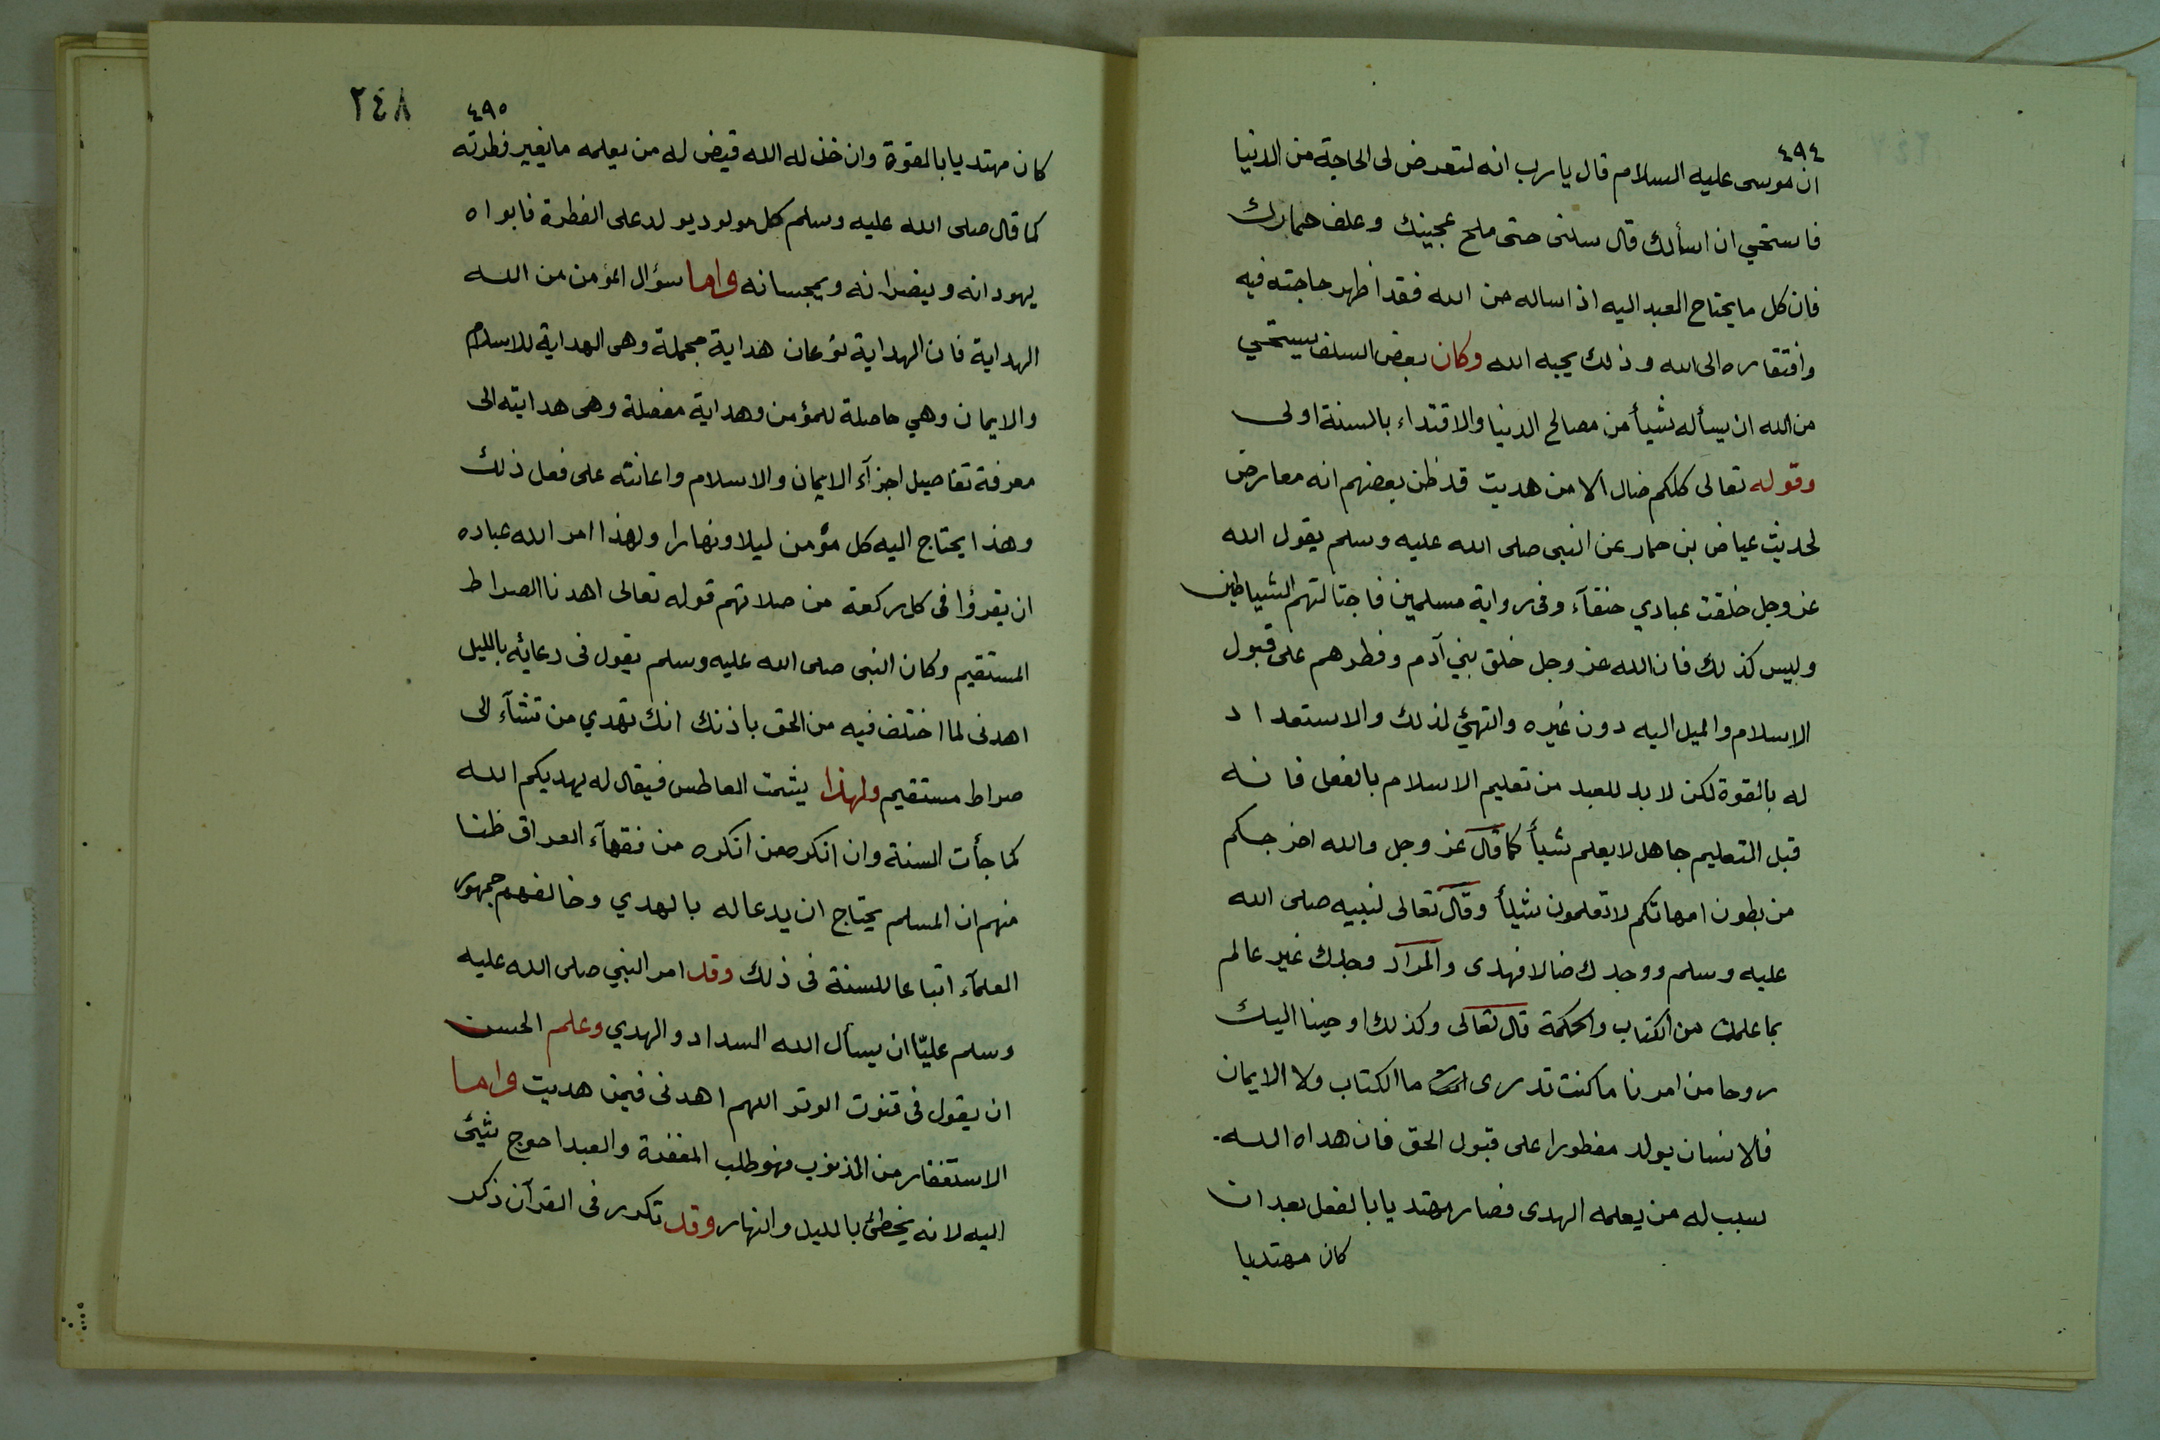 ٤٩٤
ان موسى عليه السلام قال يا رب انه لتعرض لى الحاجة من الدنيا
فاستحي ان اسألك قال سلنى حتى ملح عجينك وعلف حمارك
فان كل ما يحتاج العبد اليه اذا ساله من الله فقد اظهر حاجته فيه
وافتقاره الى الله وذلك يحبه الله وكان بعض السلف يستحيي
من الله ان يسأله شيأ من مصالح الدنيا والاقتداء بالسنة اولى
وقوله تعالى كلكم ضال الا من هديت قد ظن بعضهم انه معارض
لحديث عياض بن حمار عن النبى صلى الله عليه وسلم يقول الله
عز وجل خلقت عبادي حنفآء وفى رواية مسلمين فاجتالتهم الشياطين
وليس كذلك فان الله عز وجل خلق بني آدم وفطرهم على قبول
الاسلام والميل اليه دون غيره والتهيئ لذلك والاستعداد
له بالقوة لكن لا بد للعبد من تعليم الاسلام بالفعل فانه
قبل التعليم جاهل لا يعلم شيأ كما قال عز وجل والله اخرجكم
من بطون امهاتكم لا تعلمون شيأ وقال تعالى لنبيه صلى الله
عليه وسلم ووجدك ضالا فهدى والمراد وجدك غير عالم
بما علمك من الكتاب والحكمة قال تعالى وكذلك اوحينا اليك
روحا من امرنا ما كنت تدرى ما الكتاب ولا الايمان
فالانسان يولد مفطورا على قبول الحق فان هداه الله
سبب له من يعلمه الهدى فصار مهتديا بالفعل بعد ان
كان مهتديا
٢٤٨
٤٩٥
كان مهتديا بالقوة وان خذله الله قيض له من يعلمه ما يغير فطرته
كما قال صلى الله عليه وسلم كل مولود يولد على الفطرة فابواه
يهودانه وينصرانه ويمجسانه واما سؤال المؤمن من الله
الهداية فان الهداية نوعان هداية مجملة وهى الهداية للاسلام
والايمان وهي حاصلة للمؤمن وهداية مفصلة وهى هدايته الى
معرفة تفاصيل اجزآء الايمان والاسلام واعانته على فعل ذلك
وهذا يحتاج اليه كل مؤمن ليلا ونهارا ولهذا امر الله عباده
ان يقرؤا فى كل ركعة من صلاتهم قوله تعالى اهدنا الصراط
المستقيم وكان النبى صلى الله عليه وسلم يقول فى دعائه بالليل
اهدنى لما اختلف فيه من الحق باذنك انك تهدي من تشآء الى
صراط مستقيم ولهذا يشمت العاطس فيقال له يهديكم الله
كما جأت السنة وان انكره من انكره من فقهآء العراق ظنا
منهم ان المسلم يحتاج ان يدعا له بالهدي وخالفهم جمهور
العلمآء اتباعا للسنة فى ذلك وقد امر النبي صلى الله عليه
وسلم عليّا ان يسأل الله السداد والهدي وعلم الحسن
ان يقول فى قنوت الوتر اللهم اهدنى فيمن هديت واما
الاستغفار من الذنوب فهو طلب المغفرة والعبد احوج شيئ
اليه لانه يخطئ بالليل والنهار وقد تكرر فى القرآن ذكر